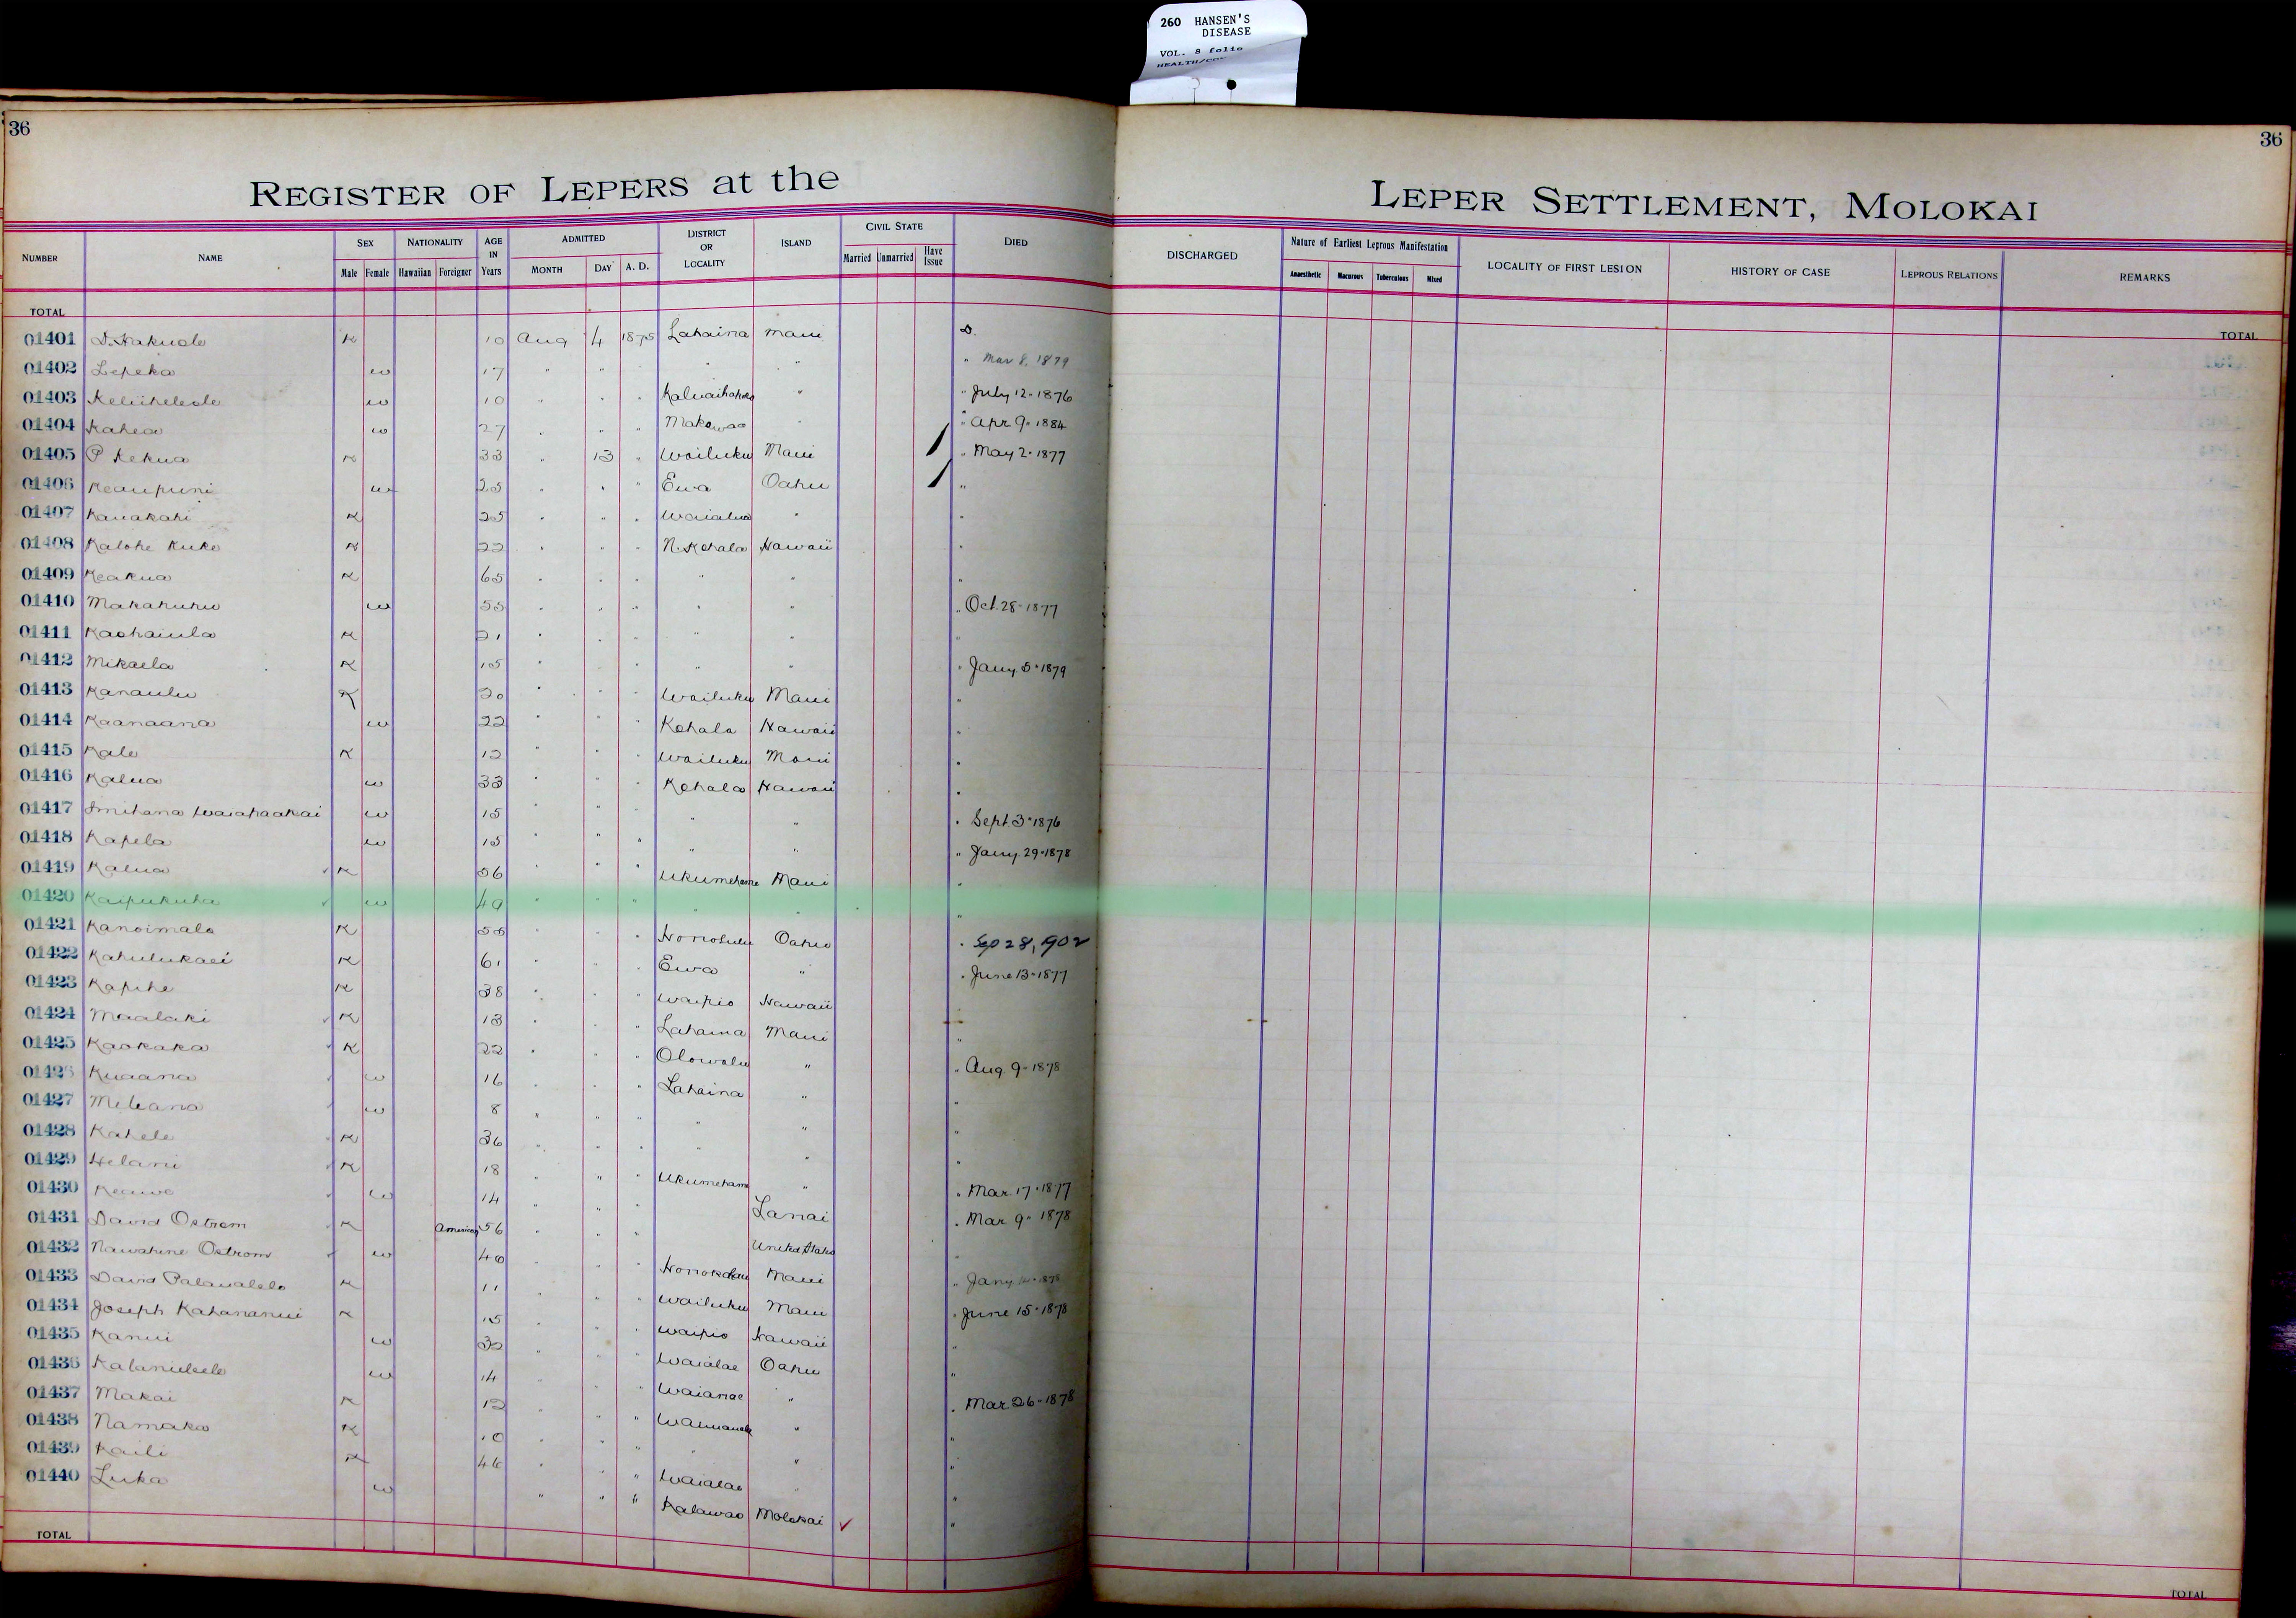 260 HANSEN'S
DISEASE
VOL. 8 folio
HEALTH/CON
36
36
REGISTER OF LEPERS at the LEPER SETTLEMENT, MOLOKAI
NUMBER NAME SEX NATIONALITY AGE IN Years ADMITTED DISTRICT OR LOCALITY ISLAND CIVIL STATE DIED DISCHARGED Nature of Earliest Leprous Manifestation LOCALITY OF FIRST LESION HISTORY OF CASE LEPROUS RELATIONS REMARKS
Male Female Hawaiian Foreigner MONTH DAY A. D. Married Unmarried Have Issue Anaesthetic Macurous Tuberculous Mixed
TOTAL TOTAL
01401 D. Hakuole K 10 Aug 4 1875 Lahaina Maui D.
01402 Lepeka w 17 " " " " " Mar 8, 1879
01403 Keliihelede w 10 " " " " " July 12 - 1876
01404 Kahea w 27 " " " Makawao " " Apr 9 - 1884
01405 P Kekua K 33 " 13 " Wailuku Maui " May 2 - 1877
01406 Keaupuni w 25 " " " Ewa Oahu "
01407 Kauakahi K 25 " " " Waialua " "
01408 Kalohe Kuke K 22 " " " N. Kohala Hawaii "
01409 Keakua K 65 " " " " " "
01410 Makahuhu w 55 " " " " " " Oct. 28 - 1877
01411 Kaohaiula K 21 " " " " " "
01412 Mikaela K 15 " " " " " " Jany 5 - 1879
01413 Kanaulu K 20 " " " Wailuku Maui "
01414 Kaanaana w 22 " " " Kohala Hawaii "
01415 Kale K 12 " " " Wailuku Maui "
01416 Kalua w 33 " " " Kohala Hawaii "
01417 Smihana Waiahaakai w 15 " " " " " " Sept. 3 - 1876
01418 Kapela w 15 " " " " " " Jany. 29 - 1878
01419 Kalua K 56 " " " Ukumehame Maui "
01420 Kaipukuha w 49 " " " " " "
01421 Kanoimalo K 55 " " " Honolulu Oahu " Sep 28, 1902
01422 Kahulukaei K 61 " " " Ewa " " June 13 - 1877
01423 Kapihe K 38 " " " Waipio Hawaii
01424 Maalaki K 13 " " " Lahaina Maui "
01425 Kaokaka K 22 " " " Olowalu " " Aug. 9 - 1878
01426 Kuaana w 16 " " " Lahaina " "
01427 Meleana w 8 " " " " " "
01428 Kahele K 36 " " " " " "
01429 Helani K 18 " " " Ukumehame " " Mar. 17 - 1877
01430 Keawe w 14 " " " Lanai " Mar. 9 - 1878
01431 David Ostrom K American 56 " " " United States "
01432 Nawahine Ostrom w 40 " " " Honokohau Maui " Jany
01433 David Palaualelo K 11 " " " Wailuku Maui " June 15 - 1878
01434 Joseph Kahananui K 15 " " " Waipio Hawaii "
01435 Kanui w 32 " " " Waialae Oahu "
01436 w 14 " " " Waianae " " Mar. 26 - 1878
01437 Makai K 12 " " " Waimanalo " "
01438 Namaka K 10 " " " " " "
01439 Kaili K 46 " " " Waialae " "
01440 Luka w " " " Kalawao Molokai ✓ "
TOTAL TOTAL